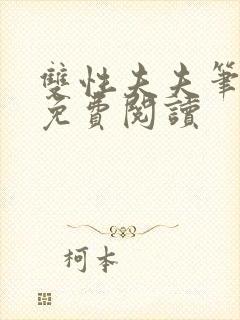 雙性夫夫筆
免費閱讀
柯本